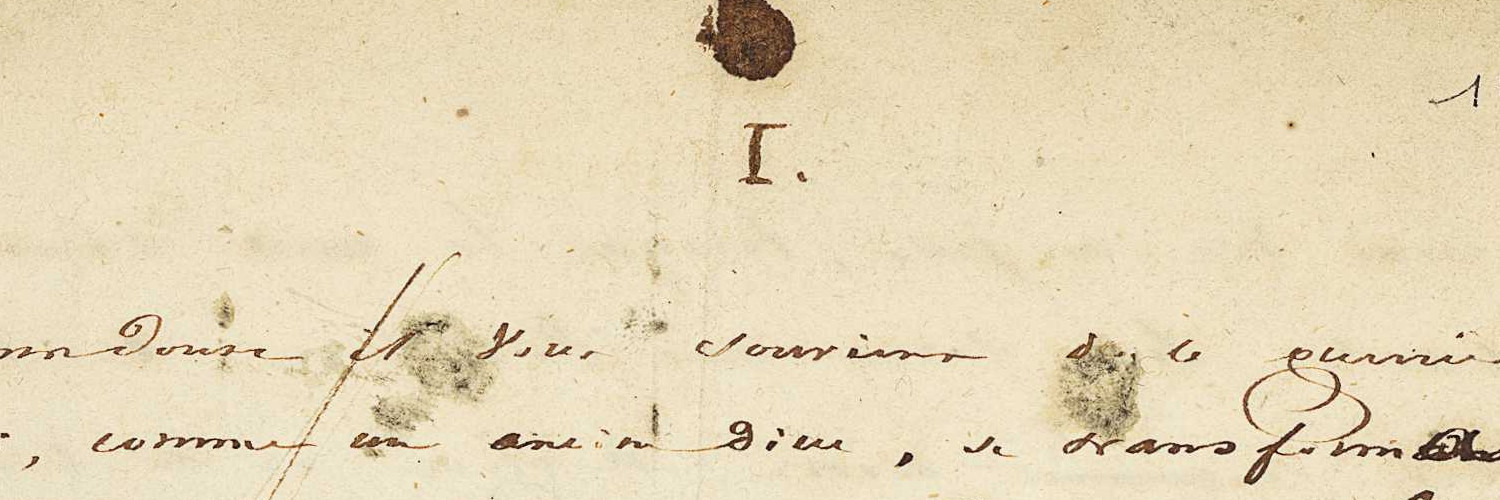 1
I.
doute il vous souvient de le
, comme un ancien Dieu, se transforma